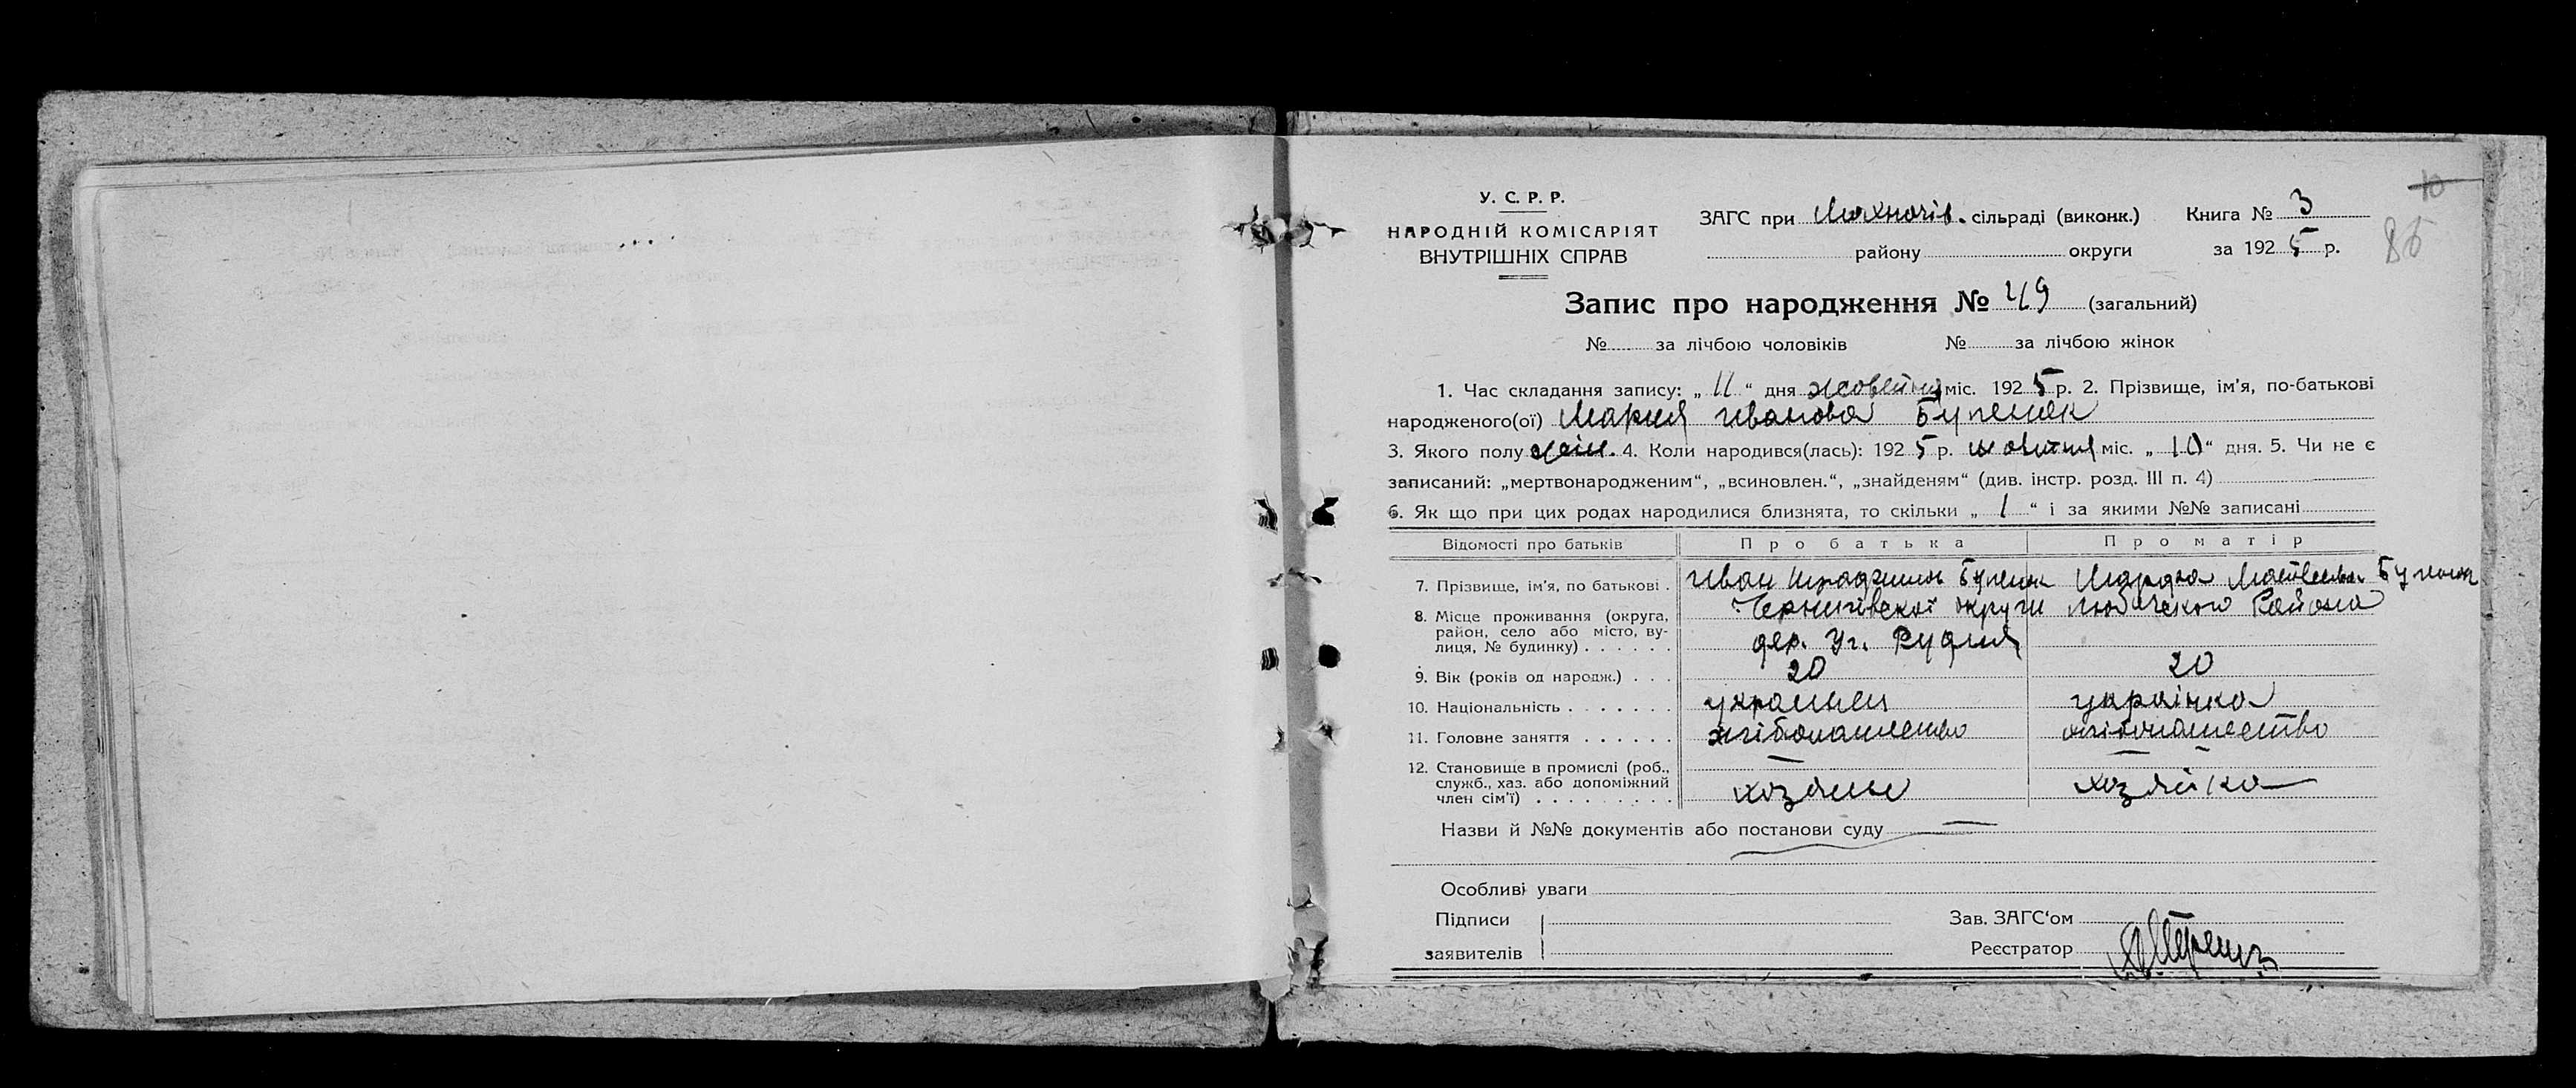 У. С. Р. Р.
НАРОДНІЙ КОМІСАРІЯТ
ВНУТРІШНІХ СПРАВ
ЗАГС при Махначів. сільраді (виконк.) Книга № 3
району округи за 1925 р.
10
86
Запис про народження № 49 (загальний)
№ за лічбою чоловіків № за лічбою жінок
1. Час складання запису: „ 11 “ дня жовтня міс. 1925 р. 2. Прізвище, ім'я, по-батькові
народженого(ої) Мария Иванова Бупенок
3. Якого полу жін. 4. Коли народився(лась): 1925 р. жовтня міс. „ 10 “ дня. 5. Чи не є
записаний: „мертвонародженим“, „всиновлен.“, „знайденям“ (див. інстр. розд. III п. 4)
6. Як що при цих родах народилися близнята, то скільки „ 1 “ і за якими №№ записані
Відомості про батьків Про батька Про матір
7. Прізвище, ім'я, по батькові . Иван Бупенок
8. Місце проживання (округа, район, село або місто, вулиця, № будинку) . . . . . . Чернигівскої округи Любечского Района
дер. Уг. Рудня
9. Вік (років од народж.) . . . 20 20
10. Національність . . . . . . . украинец українка
11. Головне заняття . . . . . . хліборобство
12. Становище в промислі (роб., служб., хаз. або допоміжний член сім'ї) . . . . . . . . . хозяин хозяйка
Назви й №№ документів або постанови суду
Особливі уваги
Підписи
заявителів
Зав. ЗАГС'ом
Реєстратор